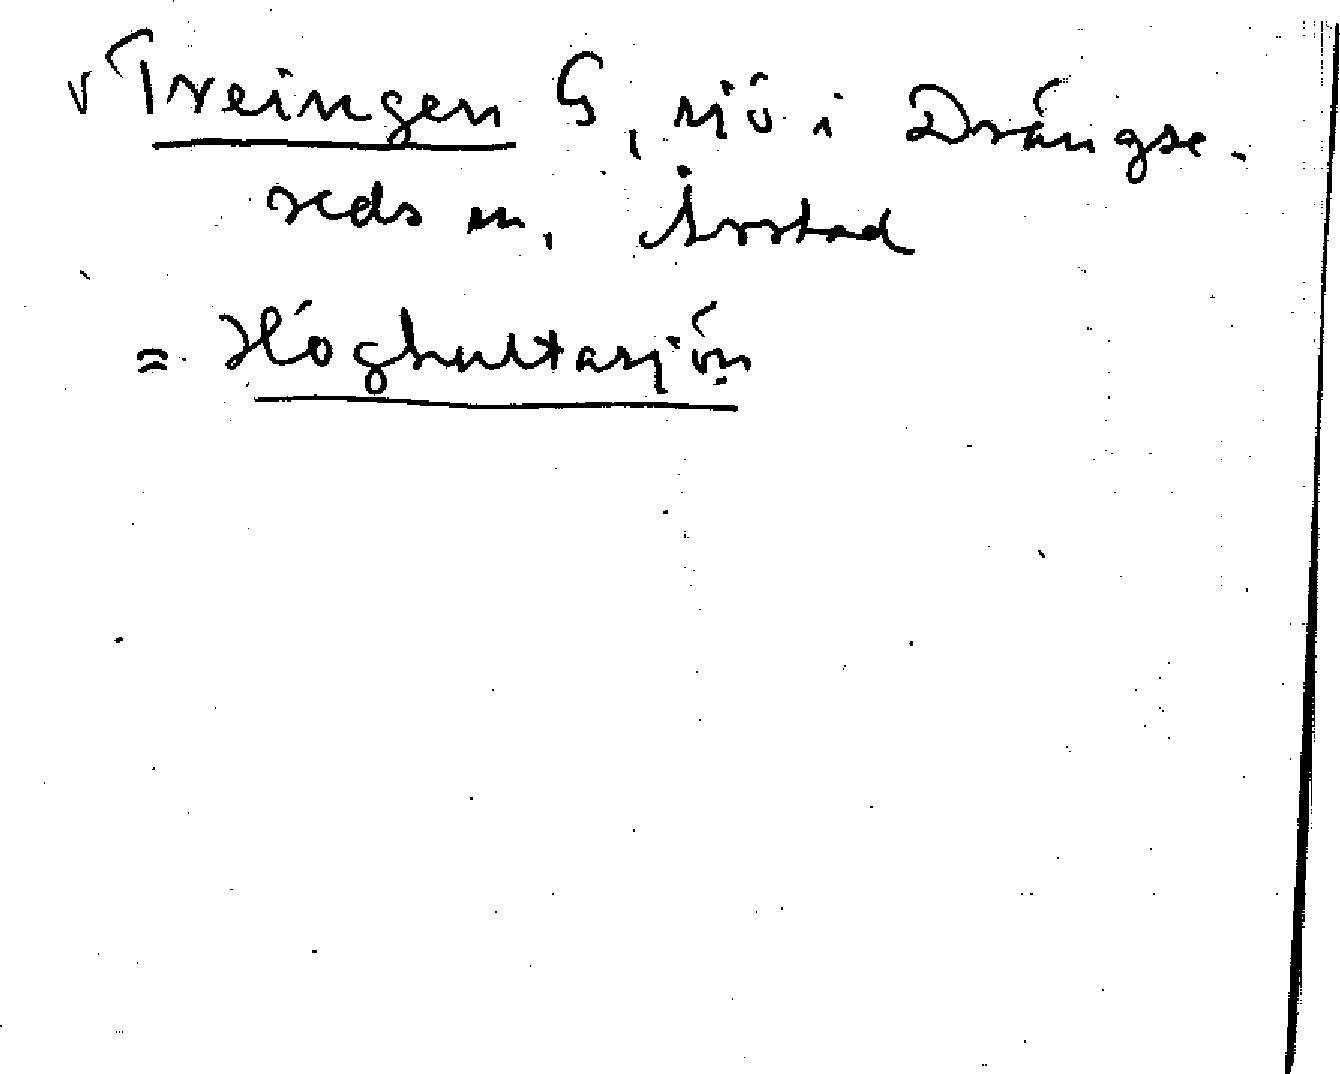 √ Treingen G, sjö i Drängse-
reds sn, Årstad
= Höghultasjön